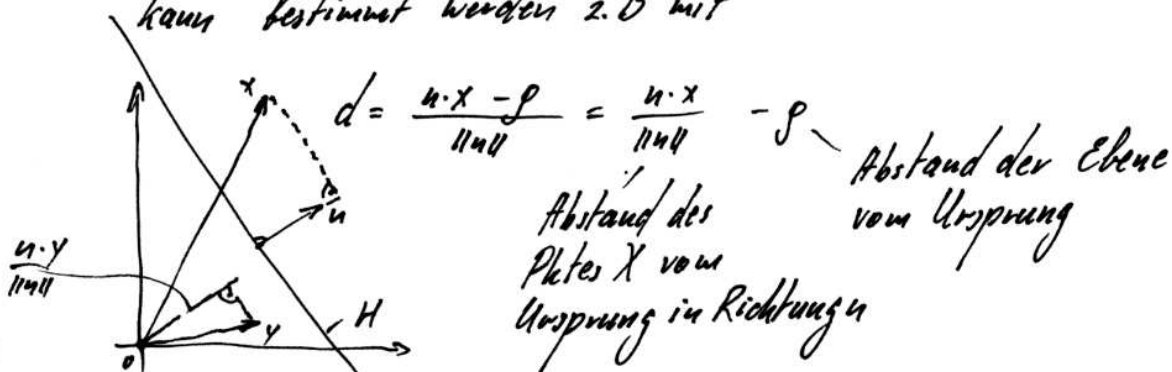 kann bestimmt werden z.B mit
d = (n·x - ρ) / ||n|| = (n·x) / ||n|| - ρ
Abstand der Ebene
vom Ursprung
Abstand des
Pktes X vom
Ursprung in Richtung n
x
n
(n·y) / ||n||
y
H
0